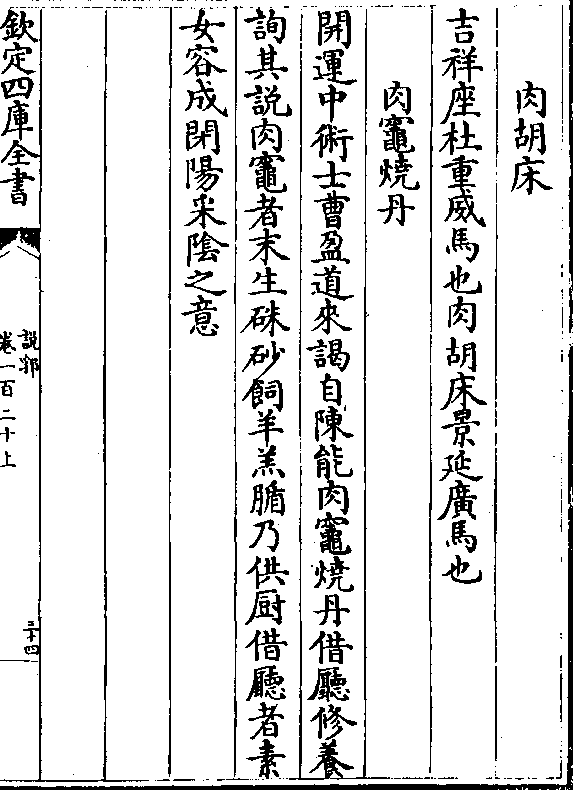 肉胡床
吉祥座杜重威馬也肉胡床景延廣馬也
肉竈燒丹
開運中術士曹盈道來謁自陳能肉竈燒丹借廳修養
詢其説肉竈者末生硃砂飼羊羔腯乃供厨借廳者素
女容成閉陽采陰之意
欽定四庫全書
説郛
卷一百二十上
三十四